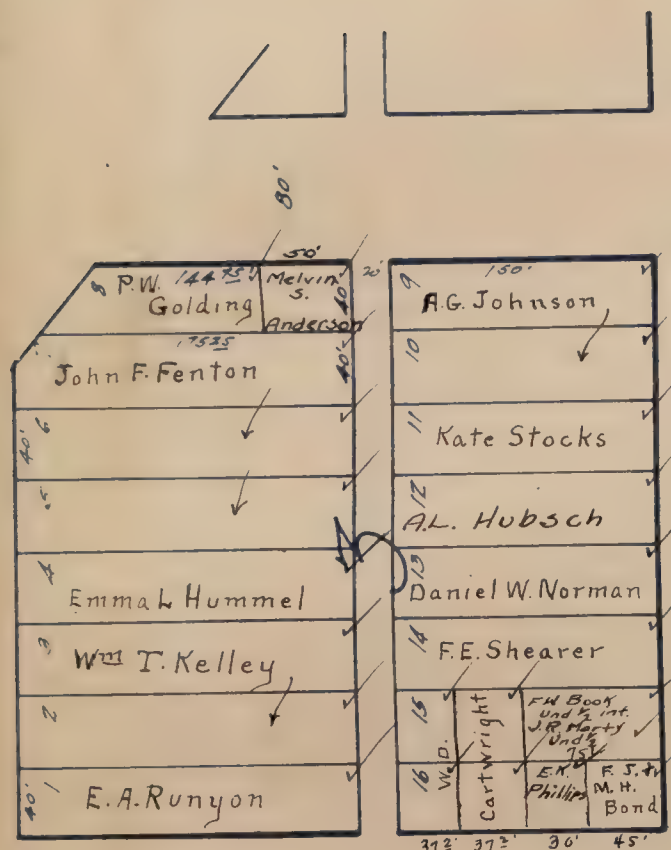 80'
50'
8 P.W. 144 75'
Golding
Melvin
S.
Anderson
40'
20'
175 25
John F. Fenton
40'
6
40'
5
4
Emma L Hummel
3
Wm T. Kelley
2
1
40'
E.A. Runyon
150'
9
A.G. Johnson
10
11
Kate Stocks
12
A.L. Hubsch
13
Daniel W. Norman
14
F.E. Shearer
15
16
W.D.
Cartwright
F W Book
und ½ int.
J.R. Marty
Und ½
75'
E.K.
Phillips
F. J. &
M. H.
Bond
37 2' 37 2' 30' 45'